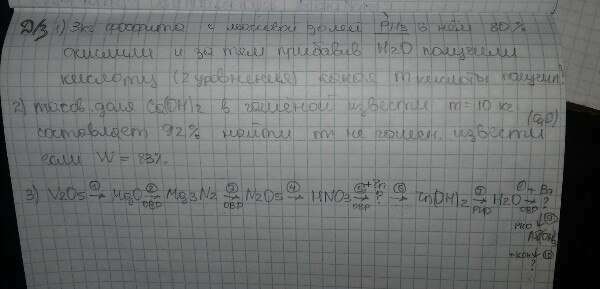 Д/з 1) 3кг фосфита с массовой долей PH3 в нём 80%
окислили и затем прибавив H2O получили
кислоту (2 уравнения) какая m кислоты получил
2) массов. доля Ca(OH)2 в гашёной извести m=10 кг
составляет 92% найти m не гашен. извести (CaO)
если W = 83%.
3) V2O5 ①→ MgO ②→ ОВР Mg3N2 ③→ ОВР N2O5 ④→ HNO3 ⑤+Zn→ ОВР ? ⑥→ Zn(OH)2 ⑦→ РИО H2O + Ba→ ОВР ?
РИО
+KOH
?